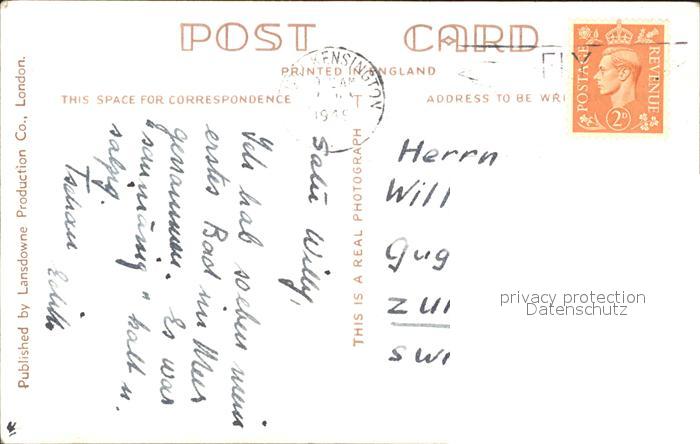 POST CARD
PRINTED IN ENGLAND
THIS SPACE FOR CORRESPONDENCE
ADDRESS TO BE WRI
KENSINGTON
AM
1949
POSTAGE REVENUE
2D
Published by Lansdowne Production Co., London.
THIS IS A REAL PHOTOGRAPH
Salü Willy,
Ich hab soeben mein
erstes Bad im Meer
genommen. Es war
"saumässig" kalt u.
salzig.
Tschau Edith
Herrn
Will
Gug
ZUR
SWI
privacy protection
Datenschutz